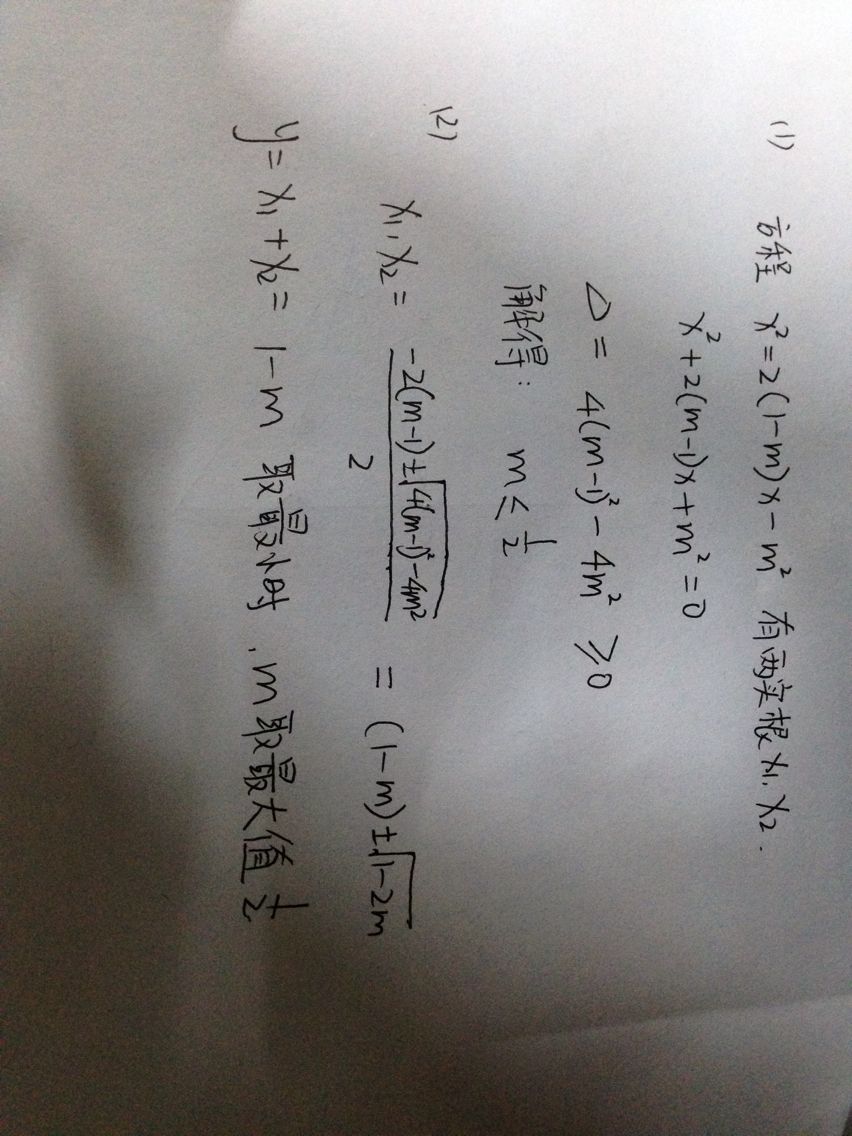 (1) 方程 x²=2(1-m)x-m² 有两实根x₁, x₂.
x²+2(m-1)x+m²=0
△= 4(m-1)²-4m² ⩾0
解得: m≤1/2
(2) x₁, x₂= (-2(m-1)±√(4(m-1)²-4m²))/2 = (1-m)±√(1-2m)
y=x₁+x₂= 1-m 取最小时, m取最大值 1/2